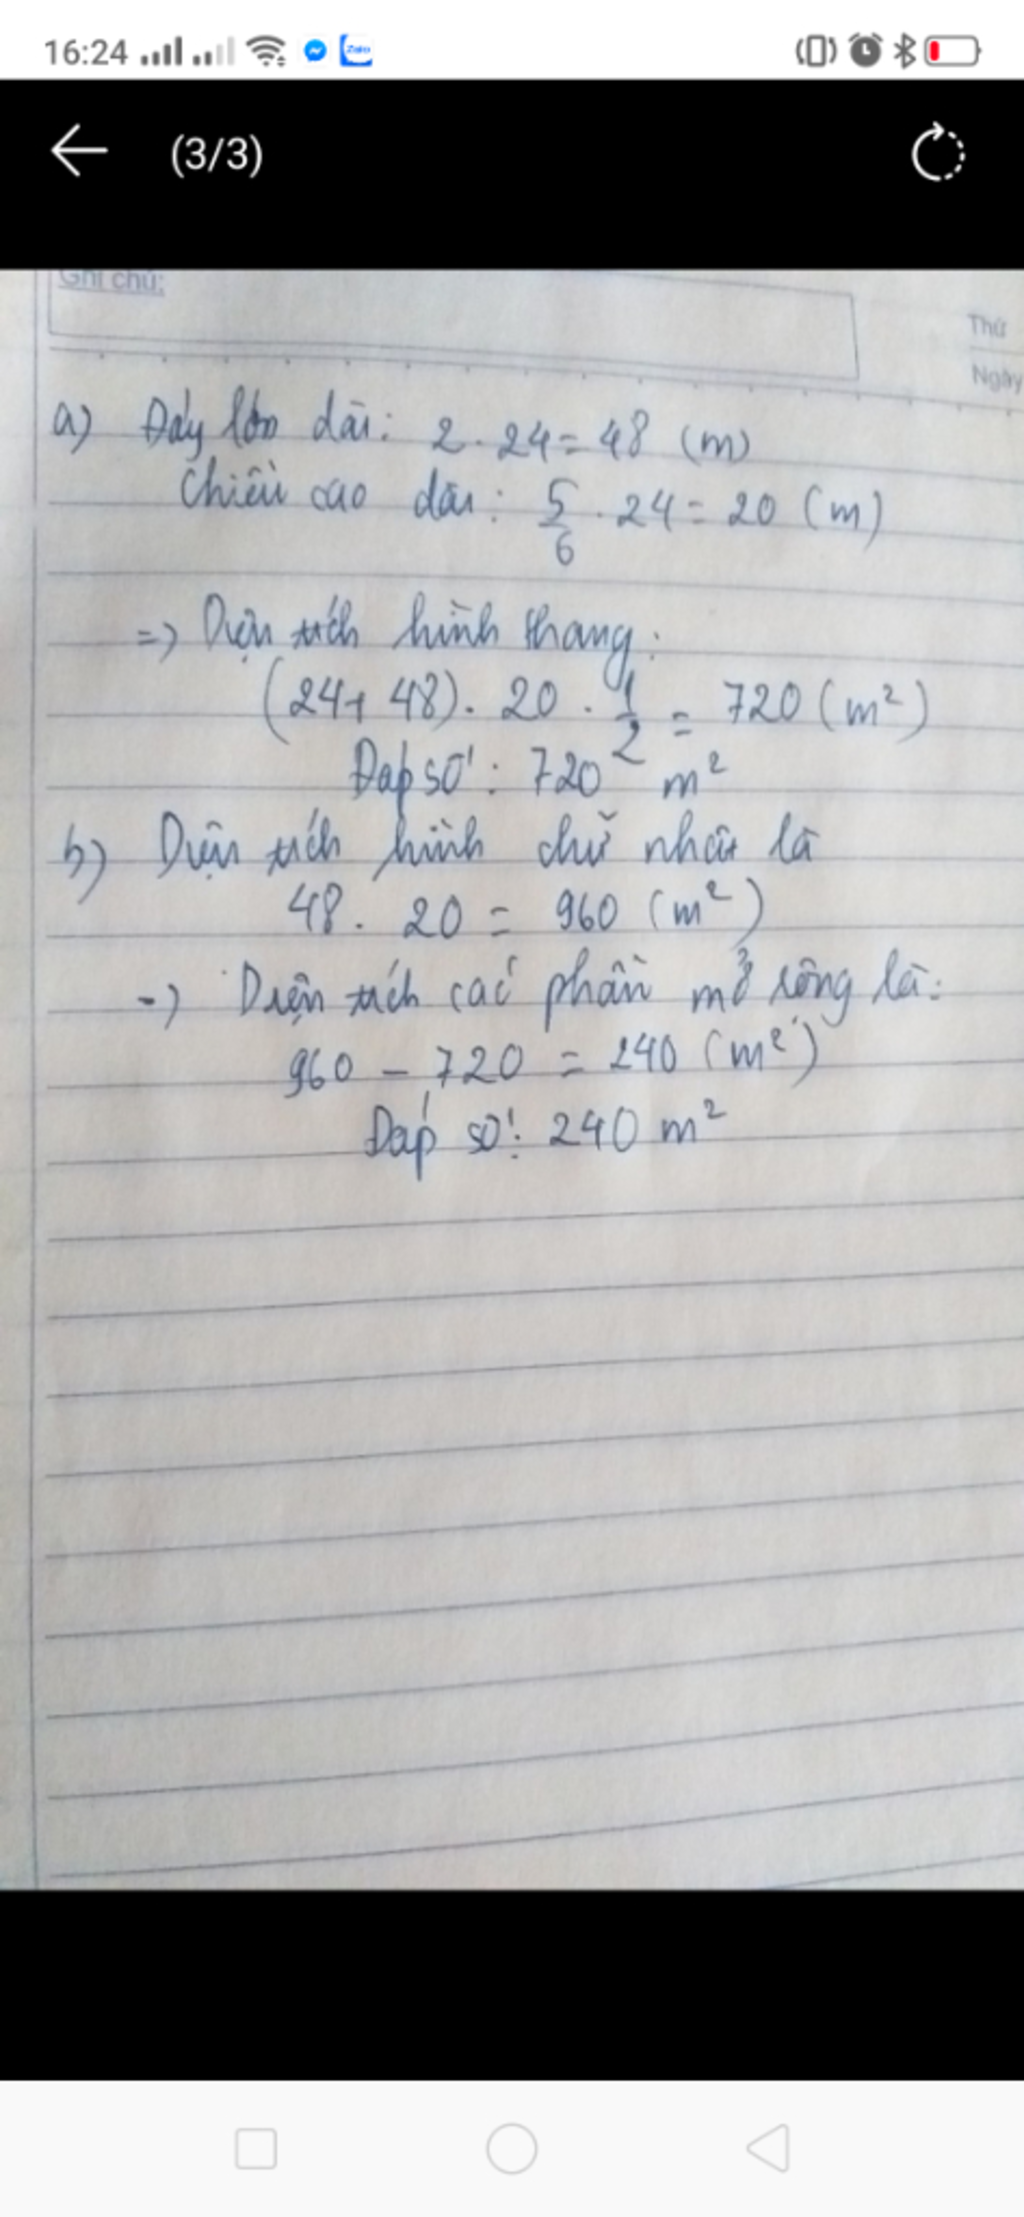 16:24
Zalo
(3/3)
Ghi chú:
Thứ
Ngày
a) Đáy lớn dài: 2 . 24 = 48 (m)
Chiều cao dài: 5/6 . 24 = 20 (m)
=> Diện tích hình thang:
(24 + 48) . 20 . 1/2 = 720 (m²)
Đáp số: 720 m²
b) Diện tích hình chữ nhật là
48 . 20 = 960 (m²)
=> Diện tích các phần mở rộng là:
960 - 720 = 240 (m²)
Đáp số: 240 m²